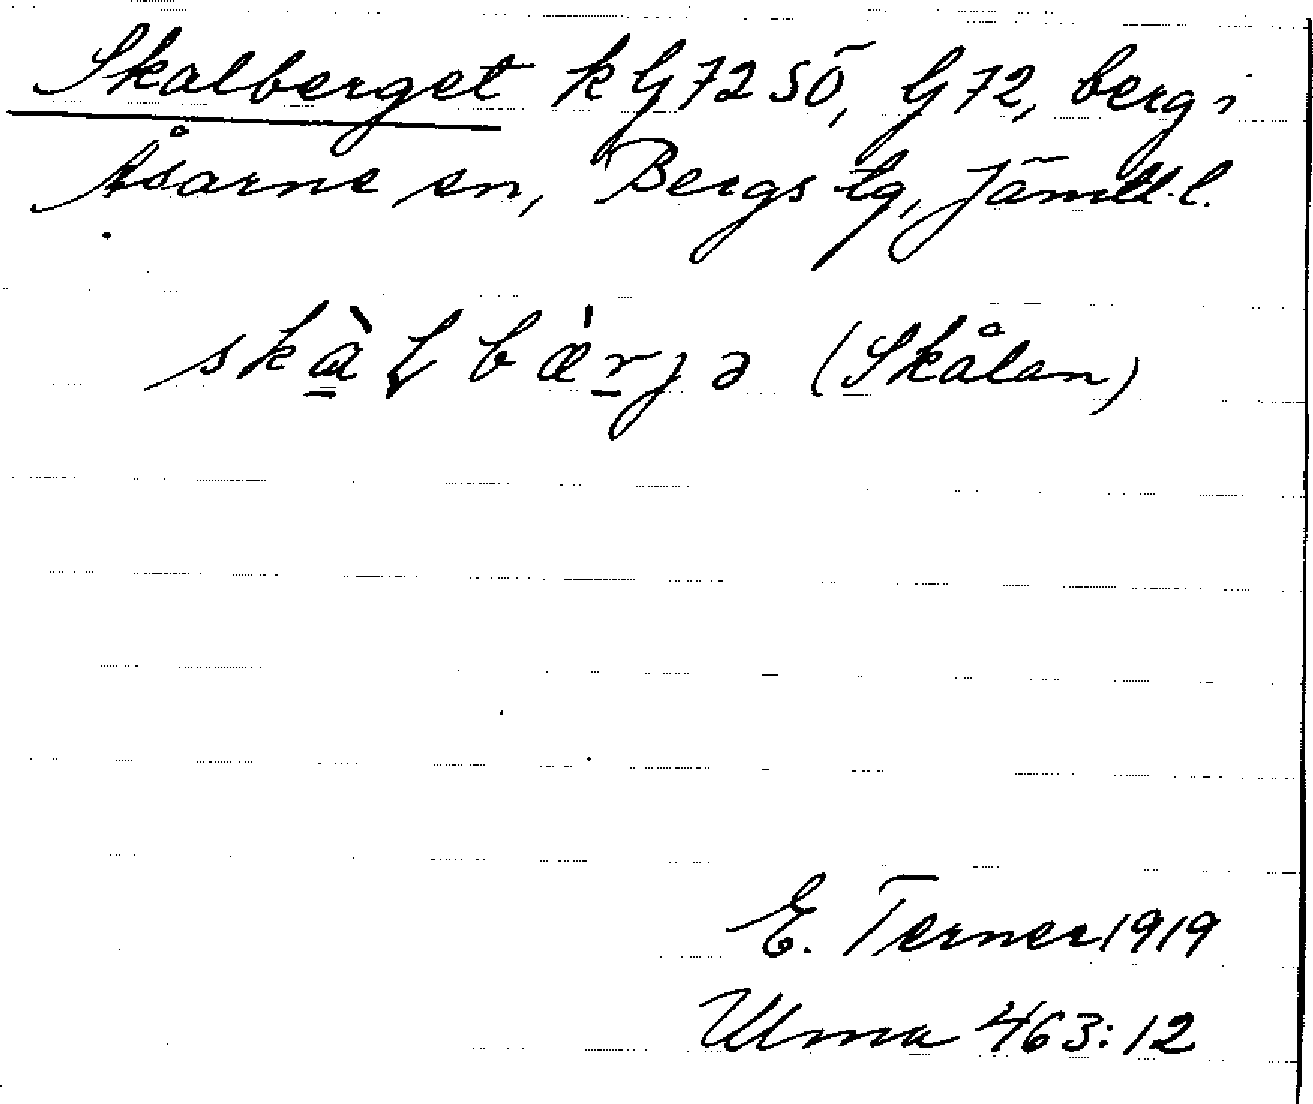 Skalberget k G72 SÖ, G72, berg i
Åsarne sn, Bergs tg, Jämtl. l.
skàl̦bæ̀rjə (Skålan)
E. Terner 1919
Ulma 463:12